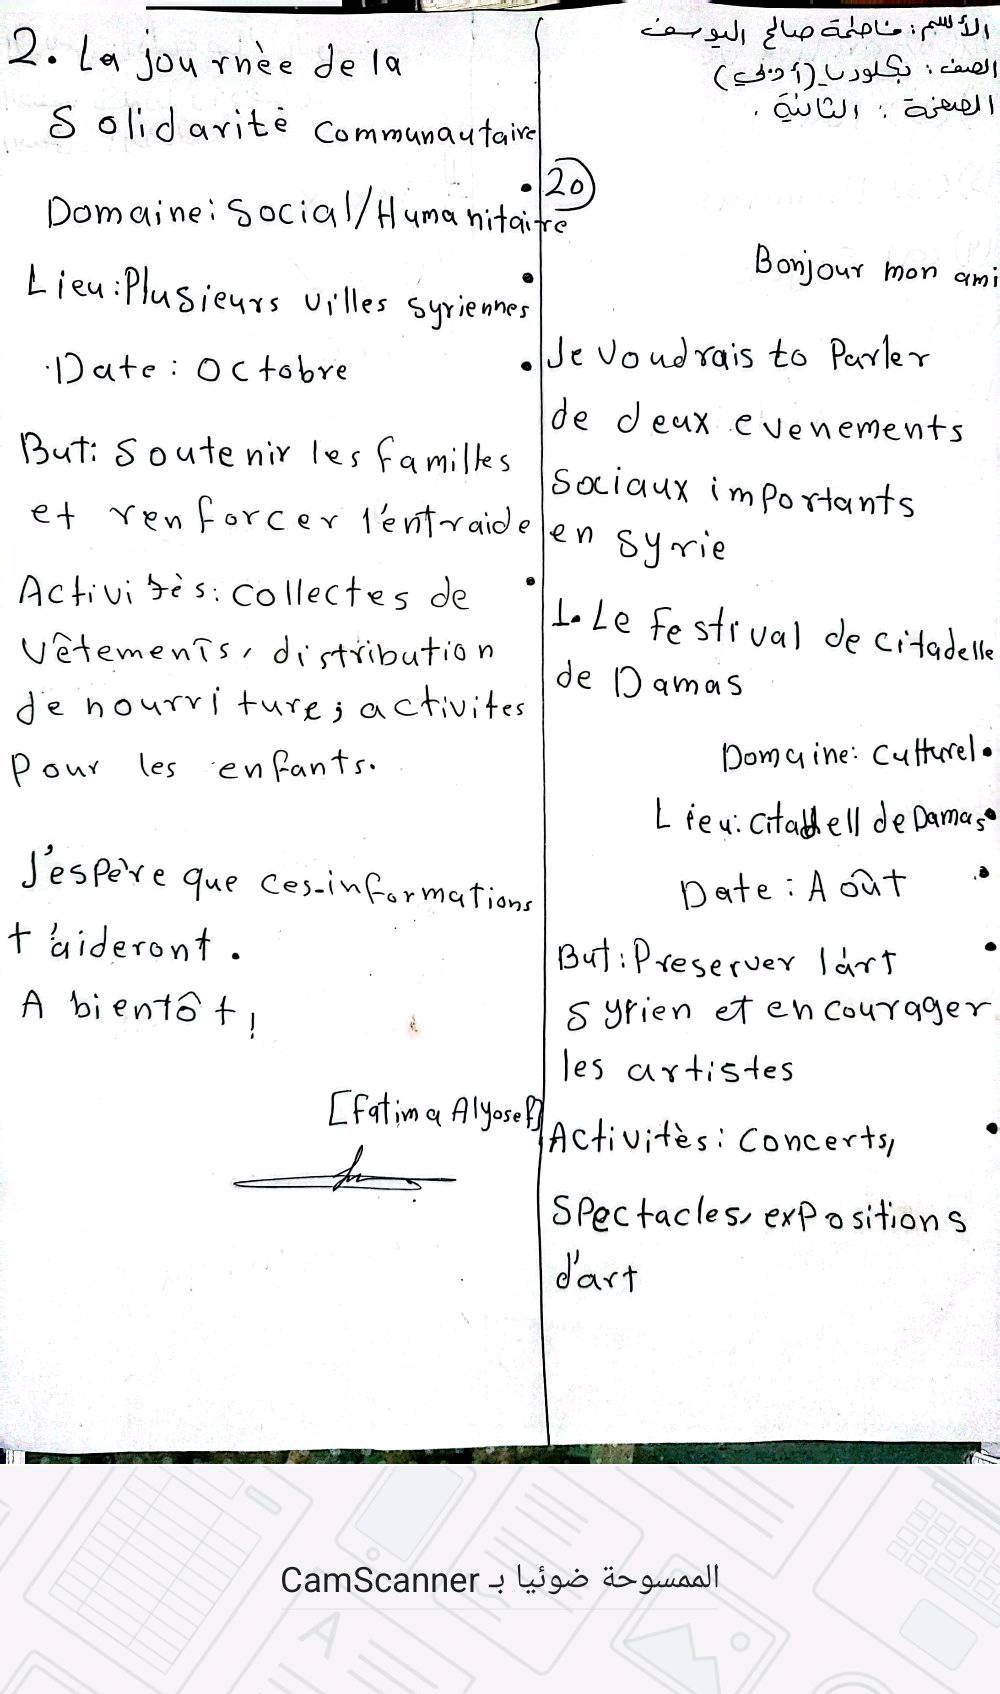 الأسم: فاطمة صالح اليوسف
الصف: بكلوريا (أدبي)
الصفحة: الثانية.
20
Bonjour mon ami
Je Voudrais to Parler
de deux evenements
sociaux importants
en syrie
1. Le festival de citadelle
de Damas
Domaine: Culturel
Lieu: Citadell de Damas
Date: Août
But: Preserver l'art
syrien et encourager
les artistes
Activitès: concerts,
spectacles, expositions
d'art
2. La journèe de la
Solidaritè communautaire
Domaine: Social/Humanitaire
Lieu: Plusieurs villes syriennes
Date: Octobre
But: Soutenir les familles
et renforcer l'entraide
Activitès: collectes de
vêtements, distribution
de nourriture; activites
Pour les enfants.
J'espère que ces-informations
t'aideront.
A bientôt!
[Fatima Alyosef]
الممسوحة ضوئيا بـ CamScanner